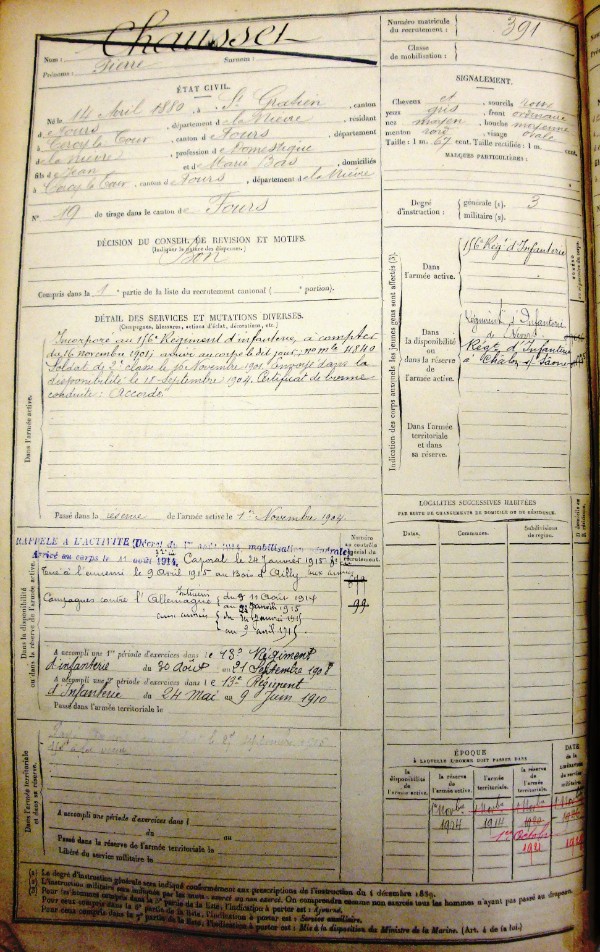 Chausset
Nom :
Prénoms : Pierre Surnoms :
Numéro matricule du recrutement : 391
Classe de mobilisation :
ÉTAT CIVIL.
Né le 14 Avril 1880, à St Gratien, canton
de Fours, département de la Nièvre, résidant
à Cercy la Tour, canton de Fours, département
de la Nièvre, profession de Domestique
fils de Jean et de Marie Bas, domiciliés
à Cercy la Tour, canton de Fours, département de la Nièvre
N° 19 de tirage dans le canton de Fours
SIGNALEMENT.
Cheveux et sourcils roux
yeux gris, front ordinaire
nez moyen, bouche moyenne
menton rond, visage ovale
Taille : 1 m. 67 cent. Taille rectifiée : 1 m. cent.
MARQUES PARTICULIÈRES :
Degré d'instruction : générale (1). 3
militaire (2).
DÉCISION DU CONSEIL DE REVISION ET MOTIFS.
(Indiquer la nature des dispenses.)
Bon
Compris dans la 1e partie de la liste du recrutement cantonal ( portion).
DÉTAIL DES SERVICES ET MUTATIONS DIVERSES.
(Campagnes, blessures, actions d'éclat, décorations, etc.)
Incorporé au 156e Régiment d'infanterie, à compter
du 16 novembre 1901, arrivé au corps le dit jour, no mle 4849
Soldat de 2e classe le 16 Novembre 1901. Envoyé dans la
disponibilité le 18 Septembre 1904. Certificat de bonne
conduite : Accordé
Dans l'armée active.
Passé dans la réserve de l'armée active le 1er Novembre 1904.
Indication des corps auxquels les jeunes gens sont affectés (3).
Dans l'armée active.
156 Rég. d'Infanterie
Dans la disponibilité ou dans la réserve de l'armée active.
Régiment d'Infanterie
Régt d'Infanterie
à Chalon s/ Saône
Dans l'armée territoriale et dans sa réserve.
LOCALITÉS SUCCESSIVES HABITÉES
PAR SUITE DE CHANGEMENTS DE DOMICILE OU DE RÉSIDENCE.
Dates. Communes. Subdivisions de région. D domicile ou R résidence.
Dans la disponibilité ou dans la réserve de l'armée active.
RAPPELÉ A L'ACTIVITÉ (Décret du 1er août 1914, mobilisation générale)
Arrivé au corps le 11 août 1914. Caporal le 24 Janvier 1915
Tué à l'ennemi le 9 Avril 1915 au Bois d'Ailly
Numéro au contrôle spécial du recrutement.
Campagnes contre l'Allemagne
Intérieur du 11 Août 1914
au Janvier 1915
aux armées du Janvier 1915
au 9 avril 1915
99
A accompli une 1re période d'exercices dans le 13e Régiment
d'infanterie du 30 Août au 21 Septembre 1908
A accompli une 2e période d'exercices dans le 13e Régiment
d'Infanterie du 24 Mai au 9 Juin 1910
Passé dans l'armée territoriale le
Dans l'armée territoriale et dans sa réserve.
A accompli une période d'exercices dans l
du au
Passé dans la réserve de l'armée territoriale le
Libéré du service militaire le
ÉPOQUE
À LAQUELLE L'HOMME DOIT PASSER DANS
la disponibilité de l'armée active.
la réserve de l'armée active.
l'armée territoriale.
la réserve de l'armée territoriale.
DATE de la LIBÉRATION du service militaire.
1er Novbre 1904
1er Novbre 1914
1er Novbre 1920
1er Octobre 1921
(1) Le degré d'instruction générale sera indiqué conformément aux prescriptions de l'instruction du 4 décembre 1889.
(2) L'instruction militaire sera indiquée par les mots : exercé ou non exercé. On comprendra comme non exercés tous les hommes n'ayant pas passé au drapeau.
Pour ceux compris dans la partie de la liste, l'indication à porter est : Ajourné.
Pour ceux compris dans la partie de la liste, l'indication à porter est : Service auxiliaire.
Pour ceux compris dans la partie de la liste, l'indication à porter est : Mis à la disposition du Ministre de la Marine. (Art. 4 de la loi.)